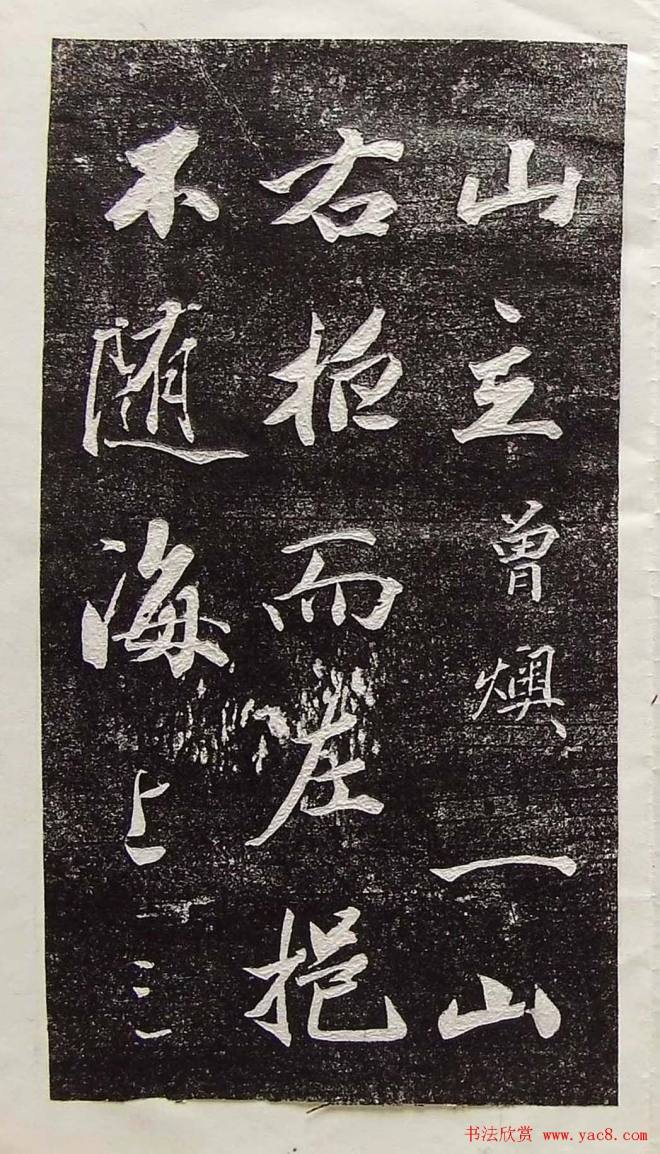 山主曾燠一山
右拖而左挹
不随海上三
书法欣赏 www.yac8.com